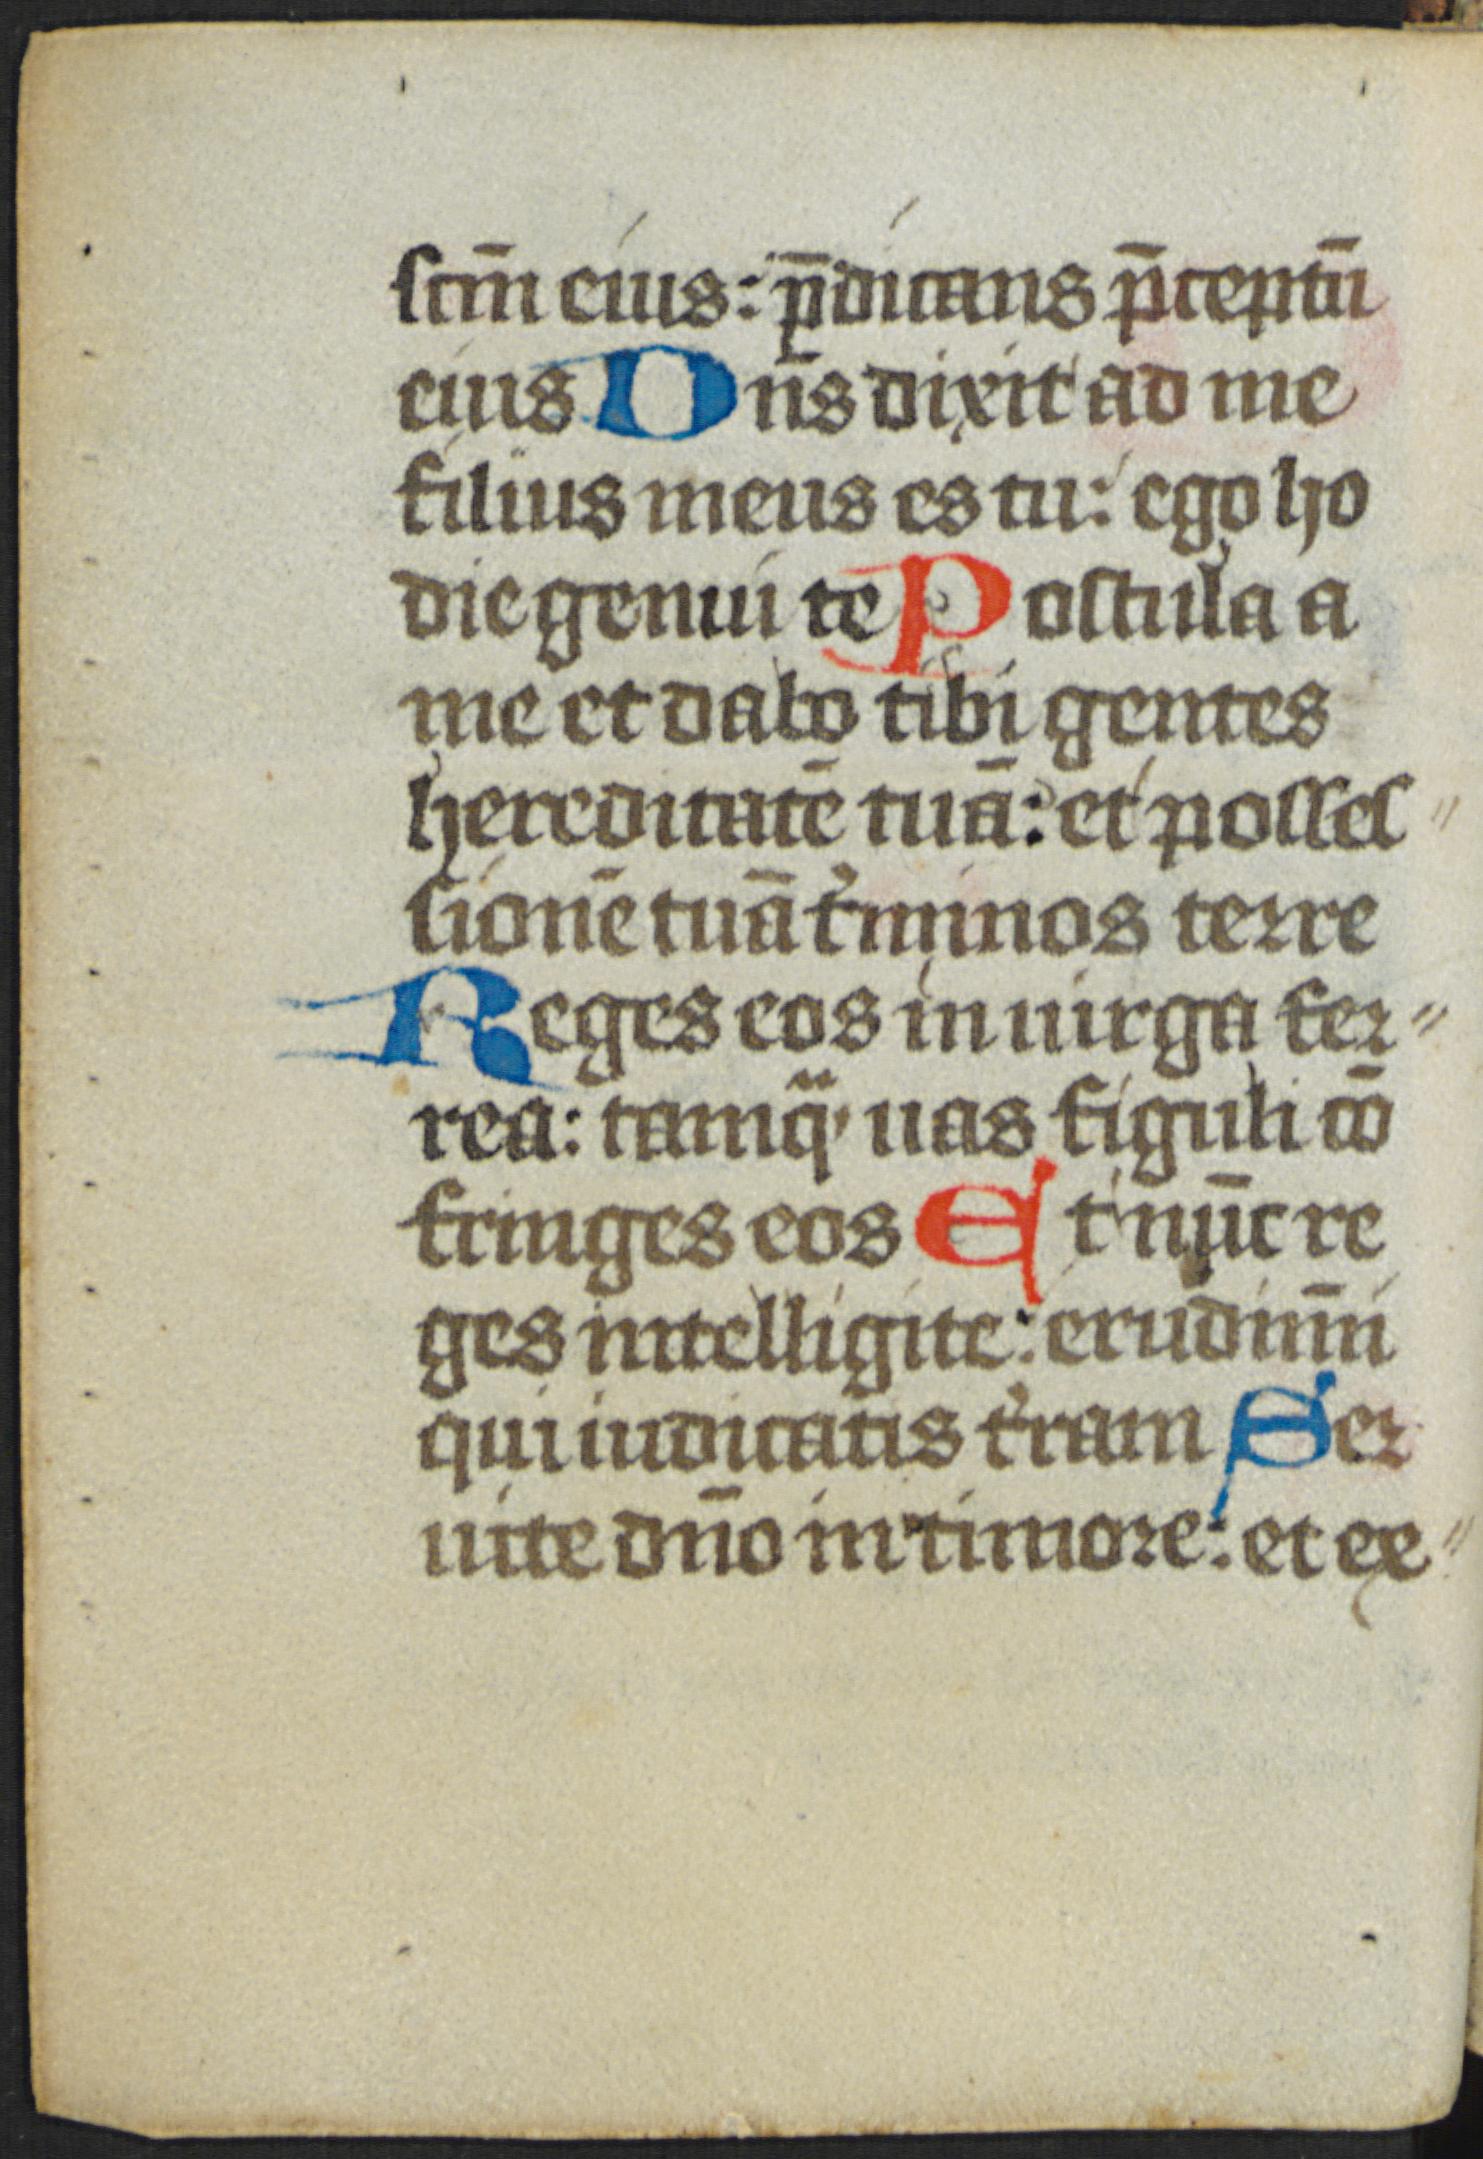 sctm̄ eius: p̄dicans p̄ceptū
eius Dn̄s dixit ad me
filius meus es tu: ego ho
die genui te Postula a
me et dabo tibi gentes
hereditatē tuā: et posses〃
sionē tuā t̛minos terre
Reges eos in uirga fer〃
rea: tamqͣ uas figuli cō
fringes eos Et nūc re
ges intelligite: erudim̄i
qui iudicatis t̛ram Ser
uite dn̄o in timore: et ex〃